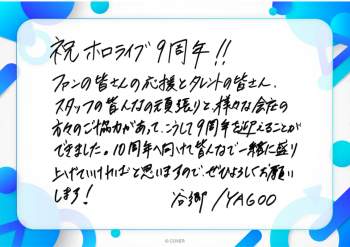 祝 ホロライブ 9周年!!
ファンの皆さんの応援とタレントの皆さん、
スタッフの皆んなの頑張りと、様々な会社の
方々のご協力があって、こうして9周年を迎えることが
できました。10周年へ向いて皆んなで一緒に盛り
上げていければと思いますので、ぜひよろしくお願い
します!
谷郷/YAGOO
© COVER